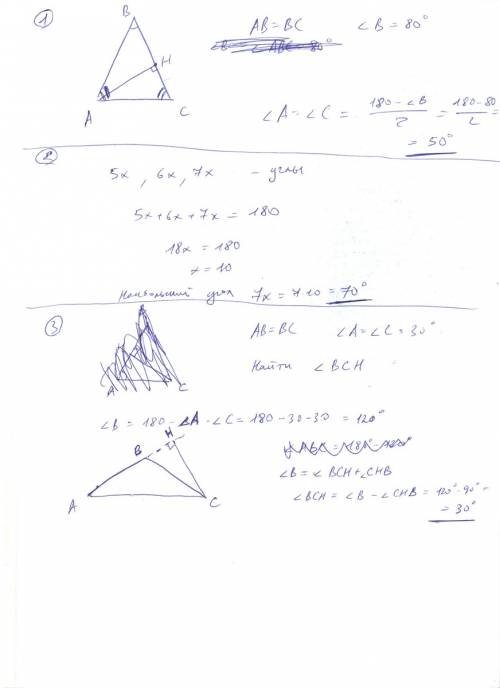 1
B
H
A
C
AB = BC ∠B = 80°
∠A = ∠C = (180 - ∠B)/2 = (180 - 80)/2 =
= 50°
2
5x, 6x, 7x - углы
5x + 6x + 7x = 180
18x = 180
x = 10
Наибольший угол 7x = 7·10 = 70°
3
AB = BC ∠A = ∠C = 30°
Найти ∠BCH
A
C
∠B = 180 - ∠A - ∠C = 180 - 30 - 30 = 120°
H
B
A
C
∠B = ∠BCH + ∠CHB
∠BCH = ∠B - ∠CHB = 120° - 90° =
= 30°